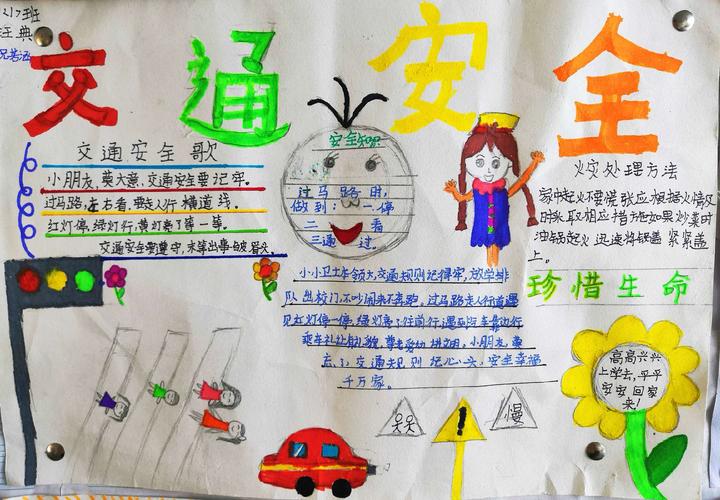 217班
交通安全
交通安全歌
小朋友,莫大意,交通安全要记牢。
过马路,左右看,要走人行横道线。
红灯停,绿灯行,黄灯亮了等一等。
交通安全要遵守,
安全知识
过马路时,
做到:一停
二看
三通过。
火灾处理方法
家中起火不要慌张应根据火情及
时采取相应措施如果炒菜时
油锅起火迅速将锅盖紧紧盖
上。
珍惜生命
小小卫士本领大,交通规则记得牢,放学排
队出校门,不吵闹来不奔跑。过马路走人行道遇
见红灯停一停,绿灯亮了往前行
乘车礼让
忘了,交通规则记心头,安全幸福
千万家。
慢
高高兴兴
上学去,平平
安安回家
来!